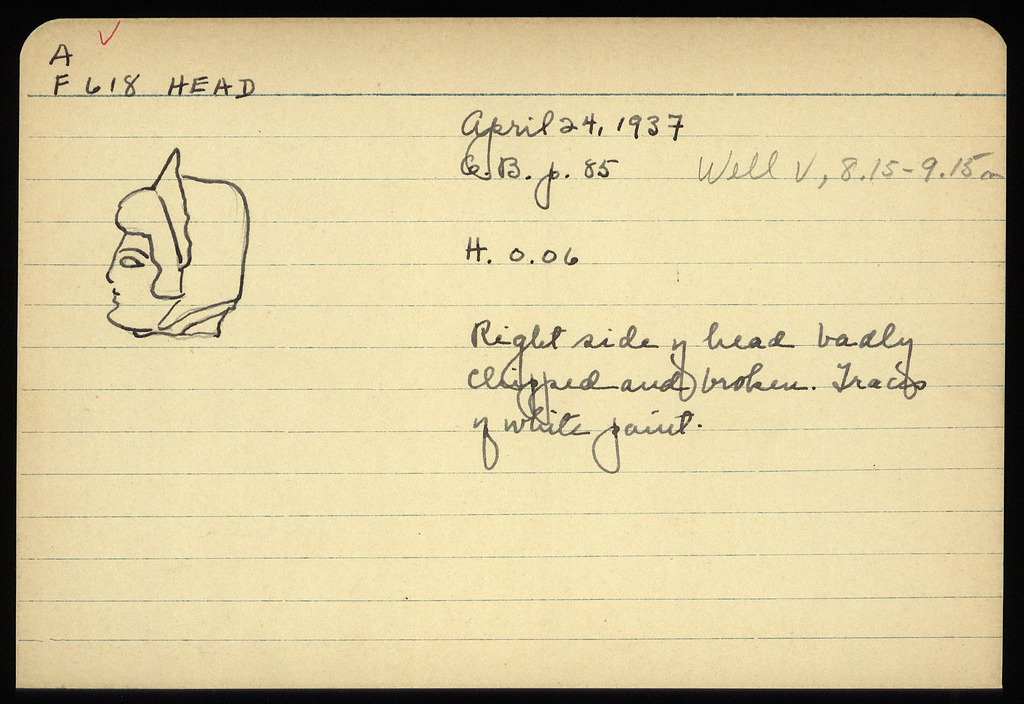 A
F 618 HEAD
April 24, 1937
E.B. p. 85 Well V, 8.15-9.15 m
H. 0.06
Right side of head badly
chipped and broken. Traces
of white paint.